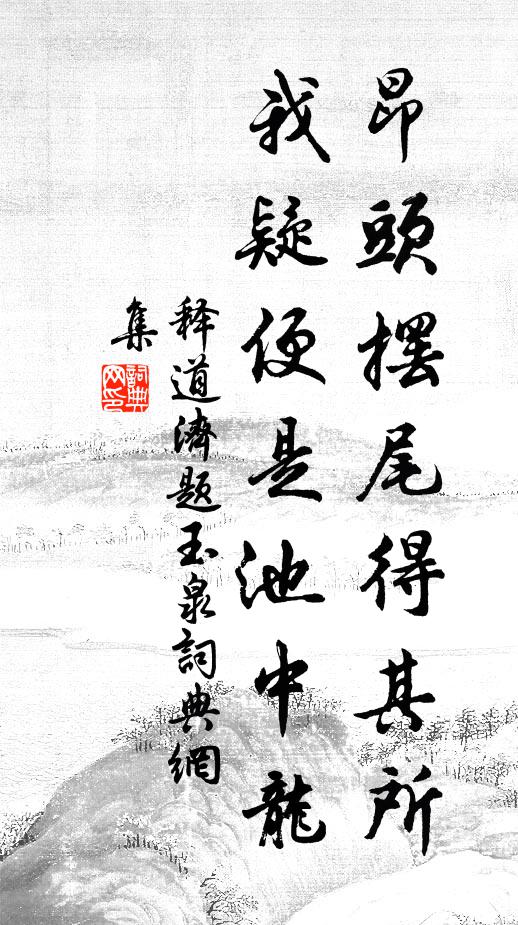 昂頭擺尾得其所
我疑便是池中龍
释道濟題玉泉詞典網
集
詞典網印